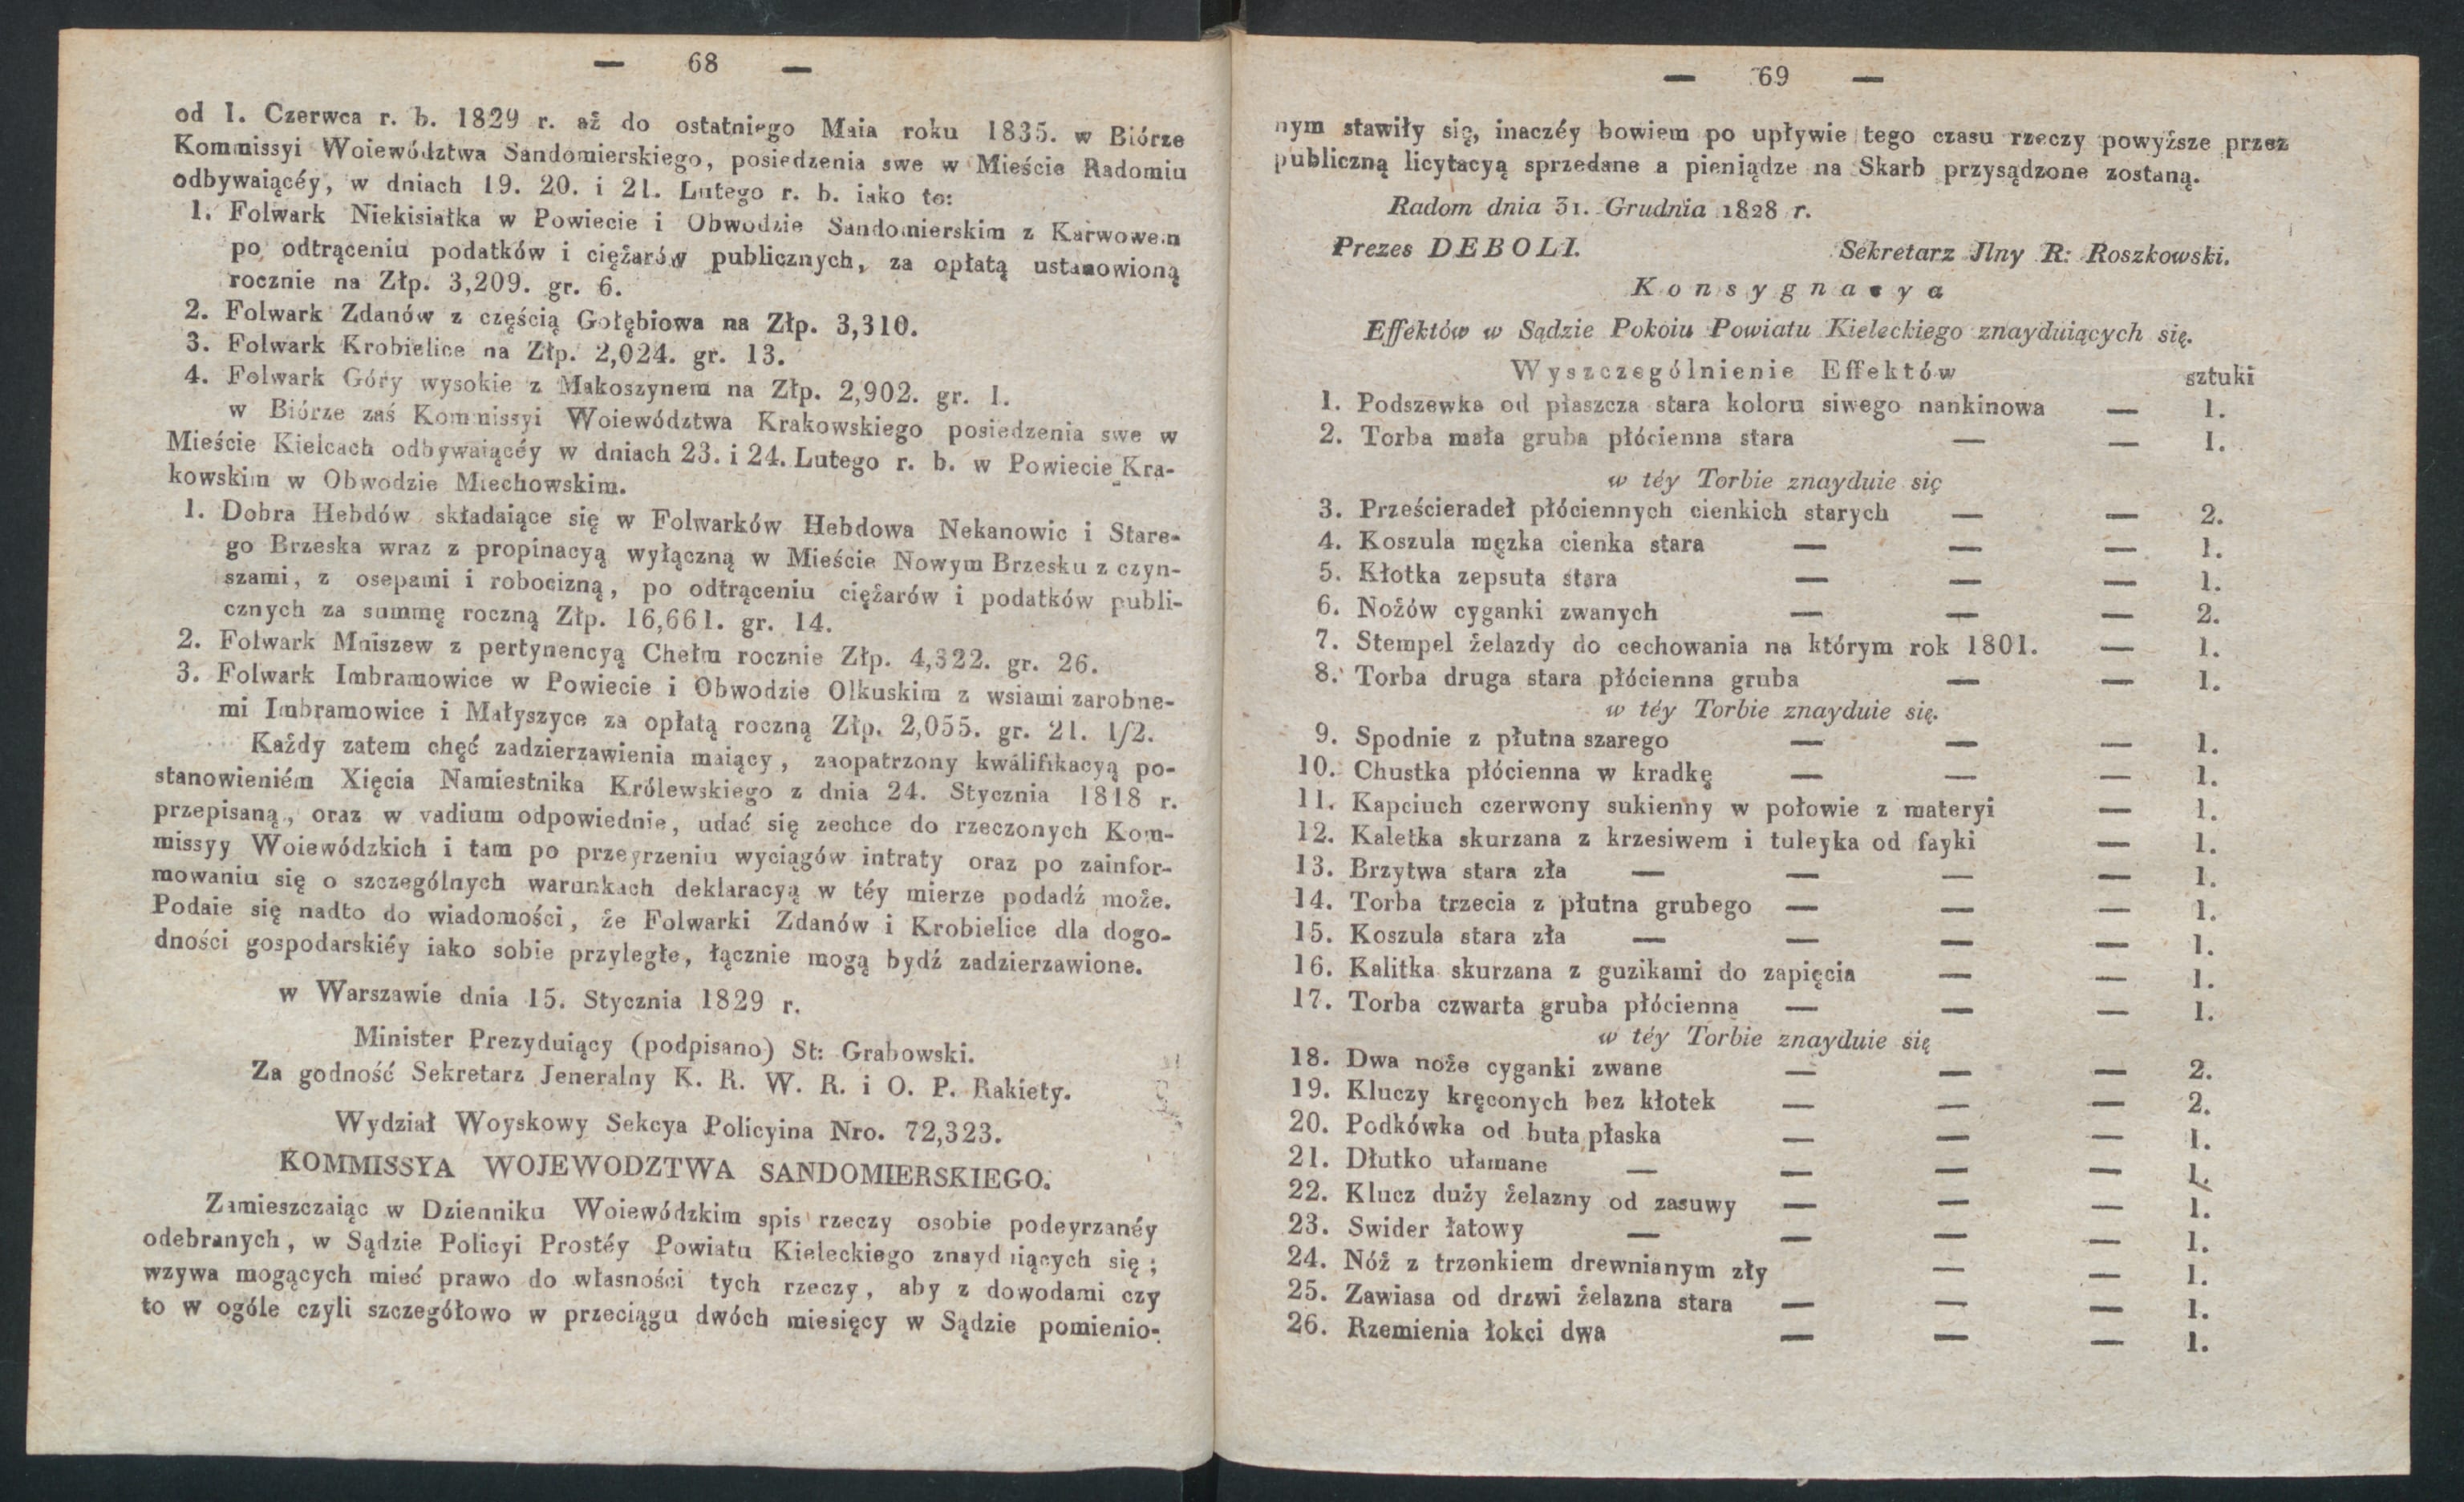 — 68 —
od 1. Czerwca r. b. 1829 r. aż do ostatniego Maia roku 1835. w Biórze
Kommissyi Woiewództwa Sandomierskiego, posiedzenia swe w Mieście Radomiu
odbywaiącéy, w dniach 19. 20. i 21. Lutego r. b. iako to:
1. Folwark Niekisiałka w Powiecie i Obwodzie Sandomierskim z Karwowem
po odtrąceniu podatków i ciężarów publicznych, za opłatą ustanowioną
rocznie na Złp. 3,209. gr. 6.
2. Folwark Zdanów z częścią Gołębiowa na Złp. 3,310.
3. Folwark Krobielice na Złp. 2,024. gr. 13.
4. Folwark Góry wysokie z Makoszynem na Złp. 2,902. gr. 1.
w Biórze zaś Kommissyi Woiewództwa Krakowskiego posiedzenia swe w
Mieście Kielcach odbywaiącéy w dniach 23. i 24. Lutego r. b. w Powiecie Kra-
kowskim w Obwodzie Miechowskim.
1. Dobra Hebdów składaiące się w Folwarków Hebdowa Nekanowic i Stare-
go Brzeska wraz z propinacyą wyłączną w Mieście Nowym Brzesku z czyn-
szami, z osepami i robocizną, po odtrąceniu ciężarów i podatków publi-
cznych za summę roczną Złp. 16,661. gr. 14.
2. Folwark Maiszew z pertynencyą Chełm rocznie Złp. 4,322. gr. 26.
3. Folwark Imbramowice w Powiecie i Obwodzie Olkuskim z wsiami zarobne-
mi Imbramowice i Małyszyce za opłatą roczną Złp. 2,055. gr. 21. 1/2.
Każdy zatem chęć zadzierzawienia maiący, zaopatrzony kwalifikacyą po-
stanowieniém Xięcia Namiestnika Królewskiego z dnia 24. Stycznia 1818 r.
przepisaną, oraz w vadium odpowiednie, udać się zechce do rzeczonych Kom-
missyy Woiewódzkich i tam po przeyrzeniu wyciągów intraty oraz po zainfor-
mowaniu się o szczególnych warunkach deklaracyą w téy mierze podadź może.
Podaie się nadto do wiadomości, że Folwarki Zdanów i Krobielice dla dogo-
dności gospodarskiéy iako sobie przyległe, łącznie mogą bydź zadzierzawione.
w Warszawie dnia 15. Stycznia 1829 r.
Minister Prezyduiący (podpisano) St: Grabowski.
Za godność Sekretarz Jeneralny K. R. W. R. i O. P. Rakiety.
Wydział Woyskowy Sekcya Policyina Nro. 72,323.
KOMMISSYA WOJEWODZTWA SANDOMIERSKIEGO.
Zamieszczaiąc w Dzienniku Woiewódzkim spis rzeczy osobie podeyrzanéy
odebranych, w Sądzie Policyi Prostéy Powiatu Kieleckiego znayduiących się;
wzywa mogących mieć prawo do własności tych rzeczy, aby z dowodami czy
to w ogóle czyli szczegółowo w przeciągu dwóch miesięcy w Sądzie pomienio-
— 69 —
nym stawiły się, inaczéy bowiem po upływie tego czasu rzeczy powyższe przez
publiczną licytacyą sprzedane a pieniądze na Skarb przysądzone zostaną.
Radom dnia 31. Grudnia 1828 r.
Prezes DEBOLI. Sekretarz Jlny R: Roszkowski.
Konsygnacya
Effektów w Sądzie Pokoiu Powiatu Kieleckiego znayduiących się.
Wyszczególnienie Effektów sztuki
1. Podszewka od płaszcza stara koloru siwego nankinowa — 1.
2. Torba mała gruba płócienna stara — — 1.
w téy Torbie znayduie się
3. Prześcieradeł płóciennych cienkich starych — — 2.
4. Koszula męzka cienka stara — — — 1.
5. Kłotka zepsuta stara — — — 1.
6. Nożów cyganki zwanych — — — 2.
7. Stempel żelazdy do cechowania na którym rok 1801. — 1.
8. Torba druga stara płócienna gruba — — 1.
w téy Torbie znayduie się.
9. Spodnie z płutna szarego — — — 1.
10. Chustka płócienna w kradkę — — — 1.
11. Kapciuch czerwony sukienny w połowie z materyi — 1.
12. Kaletka skurzana z krzesiwem i tuleyka od fayki — 1.
13. Brzytwa stara zła — — — — 1.
14. Torba trzecia z płutna grubego — — — 1.
15. Koszula stara zła — — — — 1.
16. Kalitka skurzana z guzikami do zapięcia — — 1.
17. Torba czwarta gruba płócienna — — — 1.
w téy Torbie znayduie się
18. Dwa noże cyganki zwane — — — 2.
19. Kluczy kręconych bez kłotek — — — 2.
20. Podkówka od buta płaska — — — 1.
21. Dłutko ułamane — — — — 1.
22. Klucz duży żelazny od zasuwy — — — 1.
23. Swider łatowy — — — — 1.
24. Nóż z trzonkiem drewnianym zły — — 1.
25. Zawiasa od drzwi żelazna stara — — — 1.
26. Rzemienia łokci dwa — — — 1.